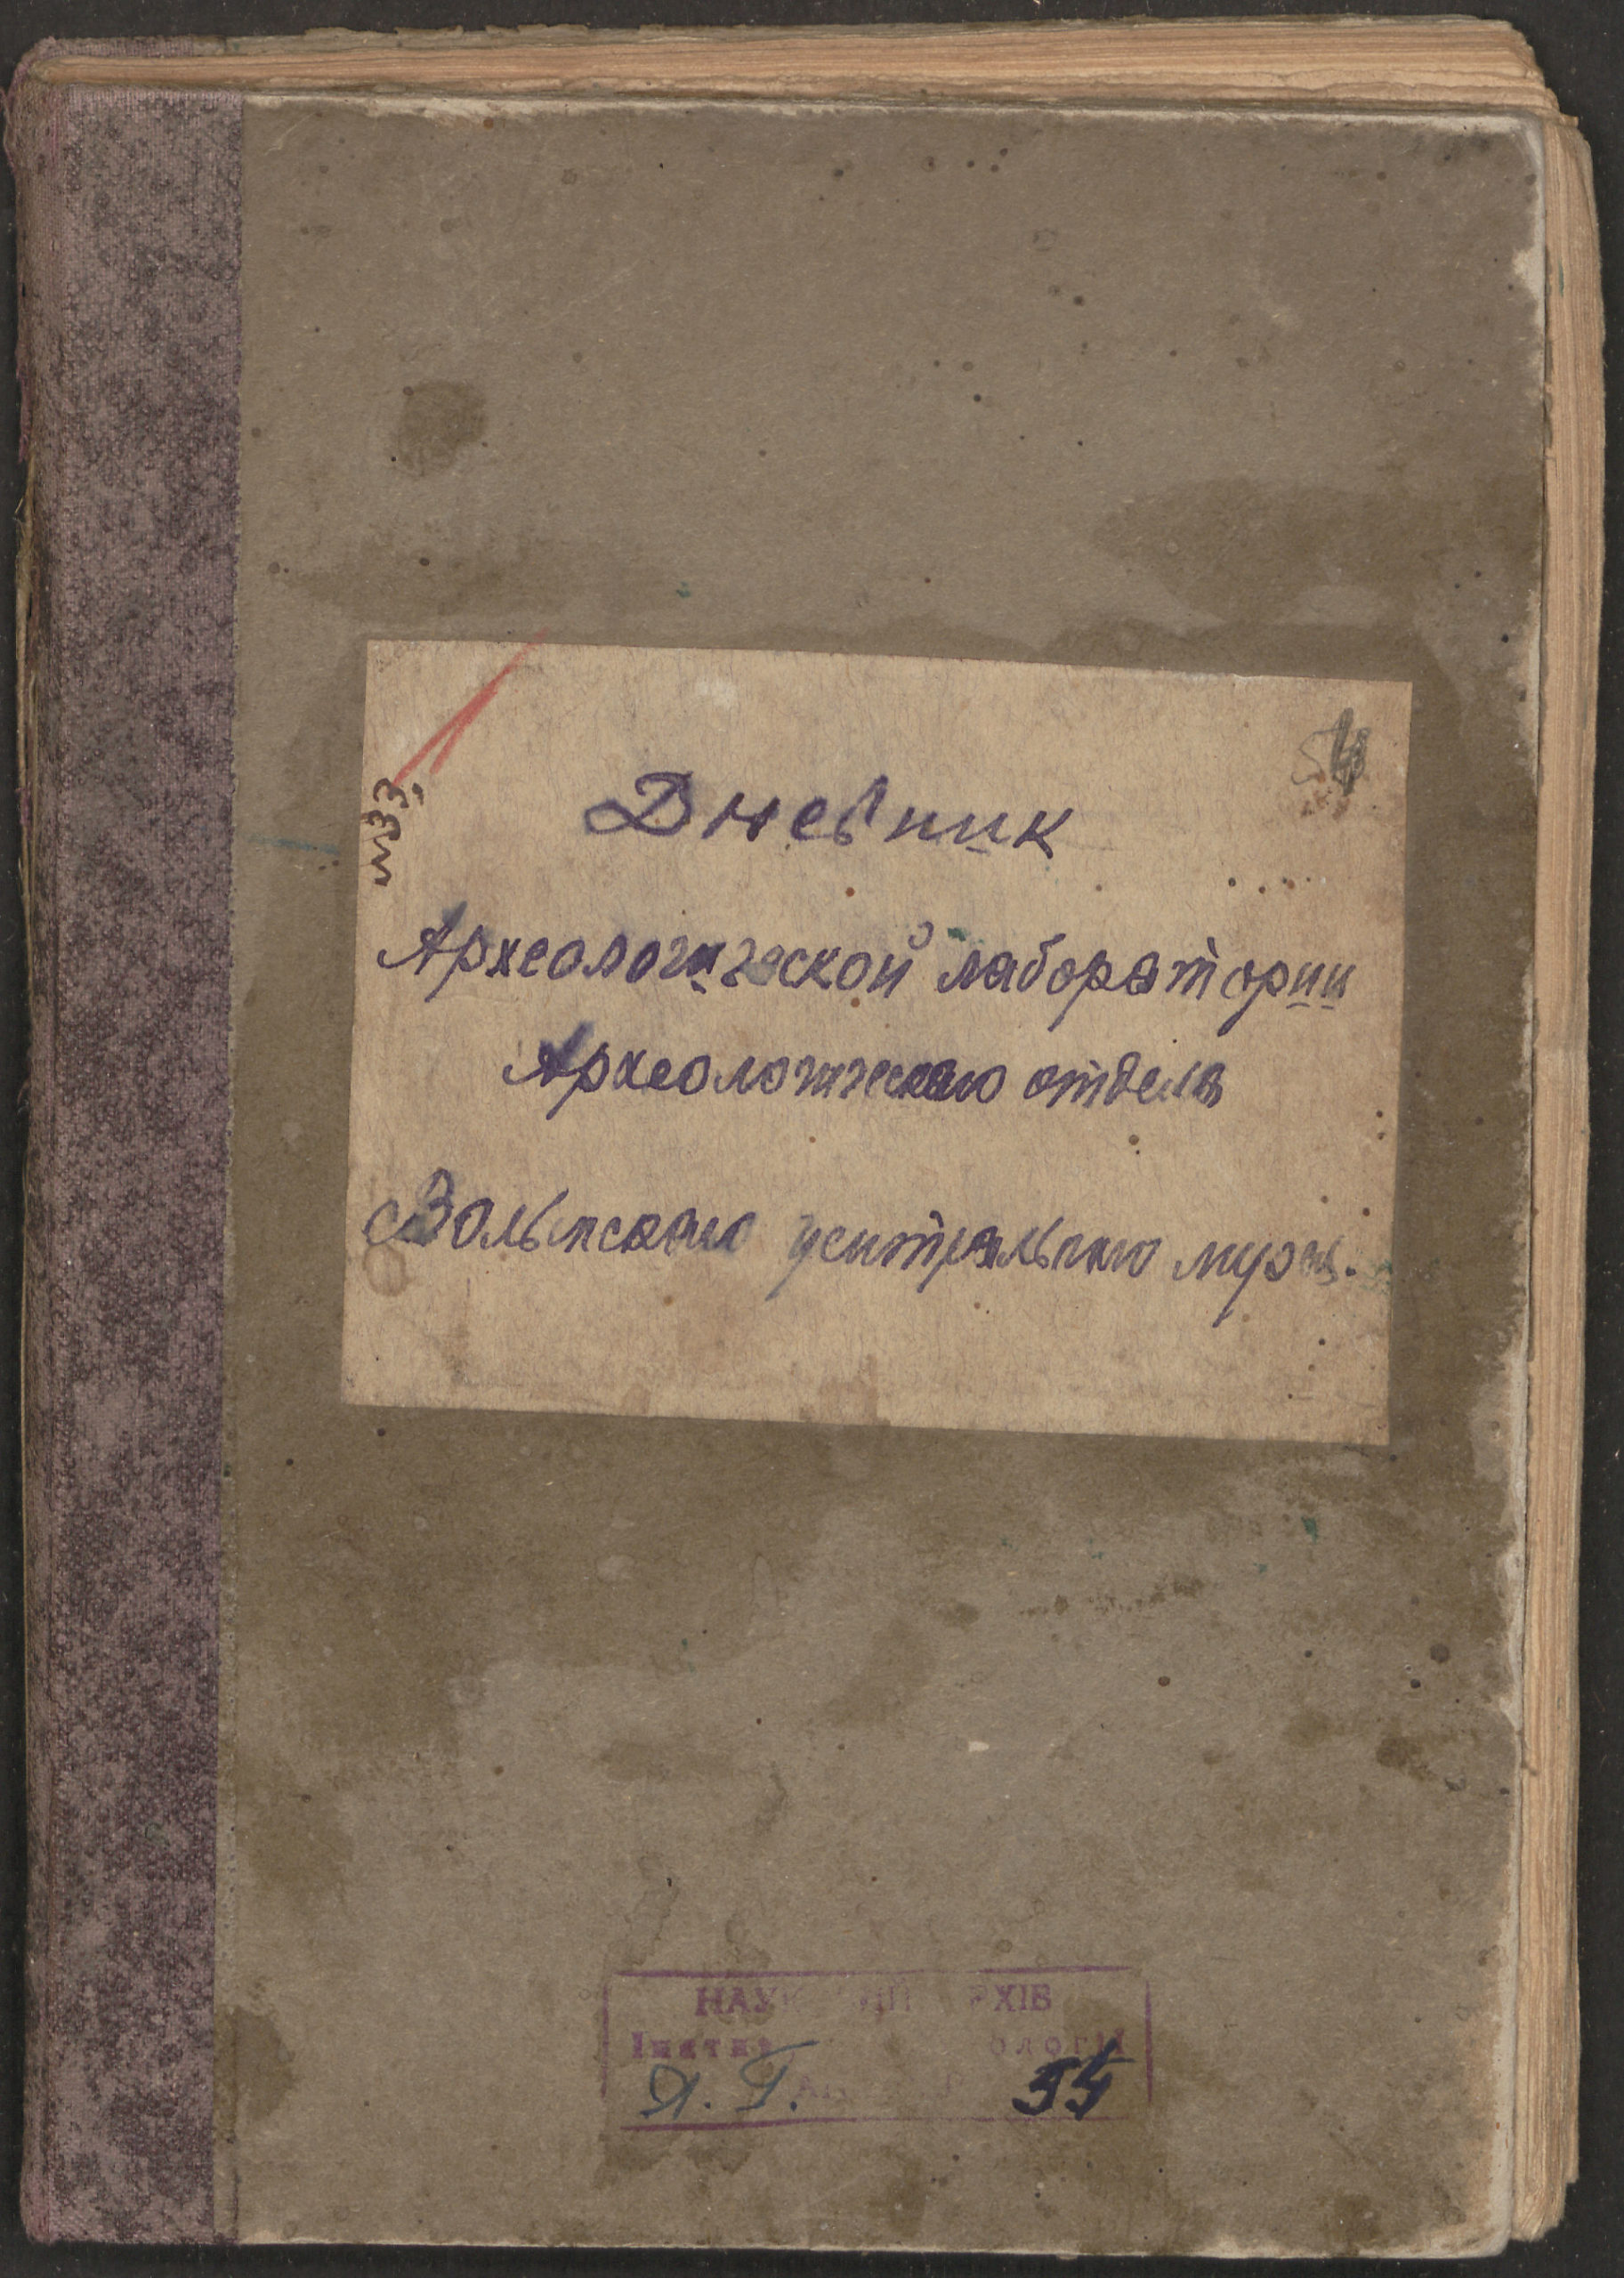 54
№33
Дневник
Археологической лаборатории
Археологического отдела
Волынского центрального муз.
НАУ ИЙ РХІВ
Інсти ології
Я. Г. 54